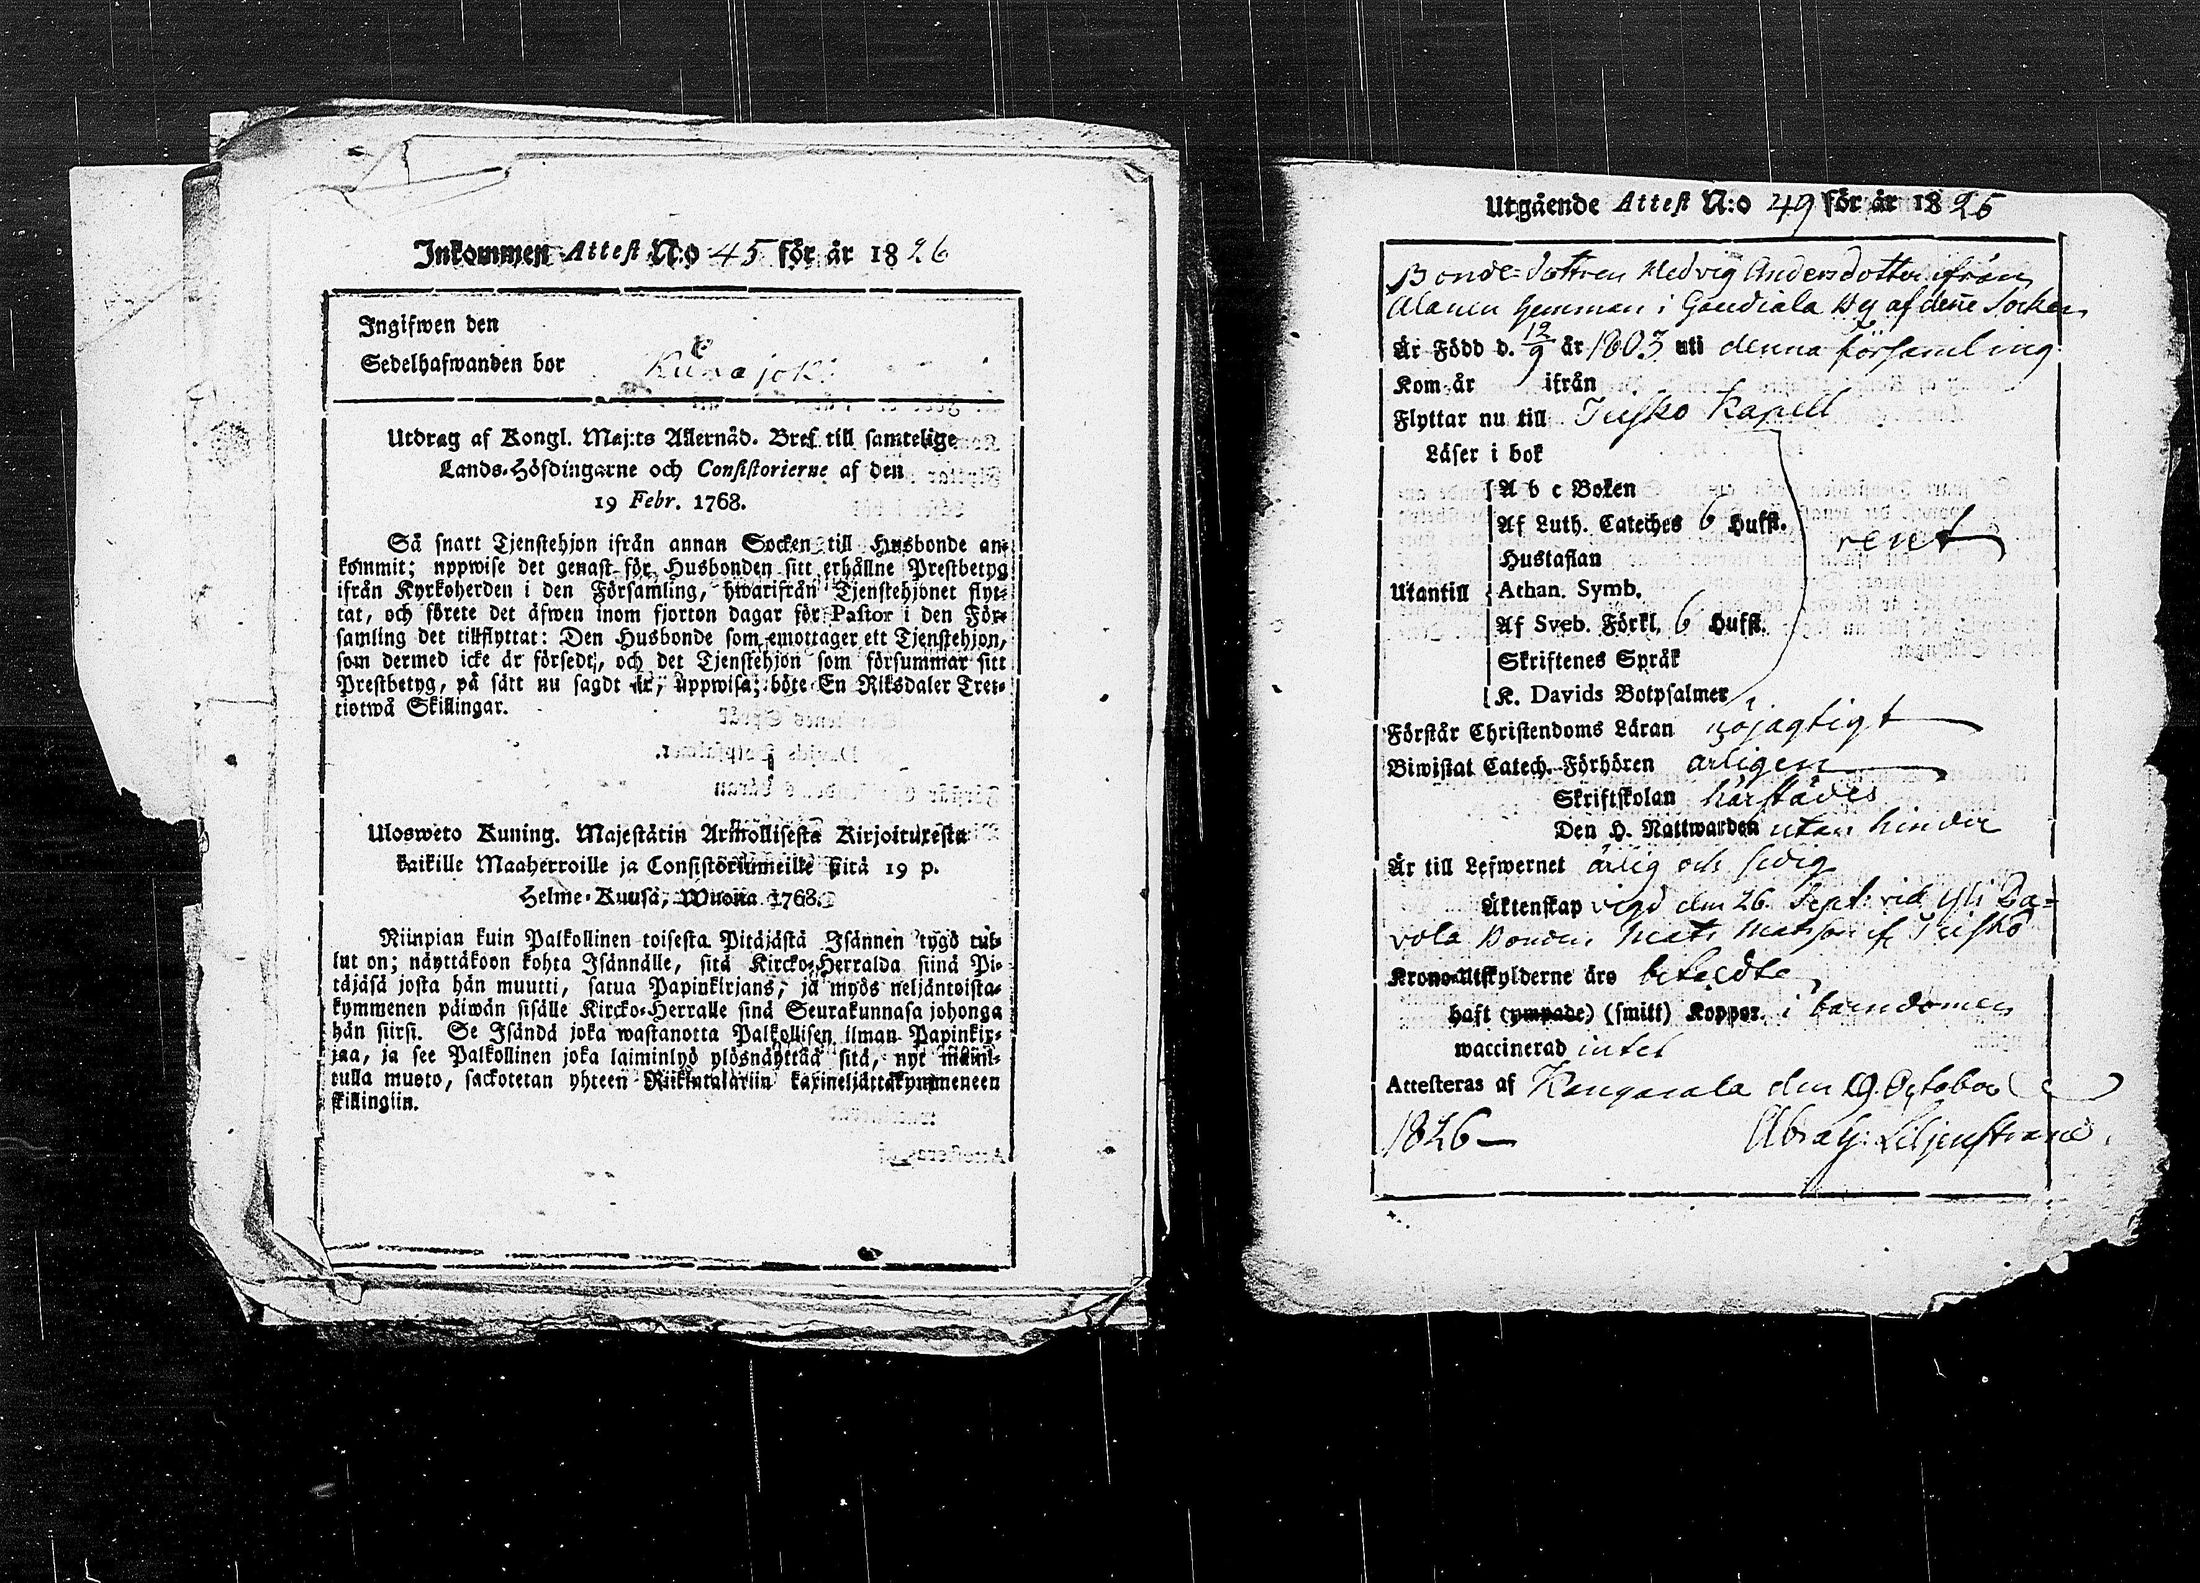 Inkommen Attest N:o 45 för år 1826
Ingifwen den
Sedelhafwanden bor
Utdrag af Kongl. Maj:ts Allernåd. Bref till samtelige
Lands-Höfdingarne och Consistorierne af den
19 Febr. 1768.
Så snart Tjenstehjon ifrån annan Socken till Husbonde an-
kommit; uppwise det genast för Husbonden sitt erhållne Prestbetyg
ifrån Kyrkoherden i den Församling, hwarifrån Tjenstehjonet flyt-
tat, och förete det äfwen inom fjorton dagar för Pastor i den För-
samling det tillflyttat: Den Husbonde som emottager ett Tjenstehjon,
som dermed icke är försedt, och det Tjenstehjon som försummar sitt
Prestbetyg, på sätt nu sagdt är, uppwisa; böte En Riksdaler Tret-
tiotwå Skillingar.
Ulosweto Kuning. Majestätin Armollisesta Kirjoituxesta
kaikille Maaherroille ja Consistoriumeille sitä 19 p.
Helme-Kuusa, Wuona 1768.
Niinpian kuin Palkollinen toisesta Pitäjästä Isännen tygö tul-
lut on; näyttäköön kohta Isännälle, sitä Kircko-Herralda siinä Pi-
täjäsä josta hän muutti, satua Papinkirjans, ja myös neljäntoista-
kymmenen päiwän sisälle Kircko-Herralle sinä Seurakunnasa johonga
hän siirsi. Se Isändä joka wastanotta Palkollisen ilman Papinkir-
jaa, ja see Palkollinen joka laiminlyö ylösnäyttää sitä, nyt maini-
tulla muoto, sackotetan yhteen Riikintalariin kaxineljättäkymmeneen
skillingiin.
Utgående Attest N:o 49 för år 1826
Bonde-dottren Hedvig Andersdotter ifrån
Alanen hemman i by af denne Socken
Är Född d. 12/9 år 1803 uti denna församling
Kom år ifrån
Flyttar nu till Kapell
Läser i bok
A b c Boken
Af Luth. Cateches 6 Hufst.
rent
Hustaflan
Utantill Athan. Symb.
Af Sveb. Förkl. 6 Hufst.
Skriftenes Språk
K. Davids Botpsalmer
Förstår Christendoms Läran nöjagtigt
Biwistat Catech. Förhören årligen
Skriftskolan härstädes
Den H. Nattwarden utan hinder
Är till Lefwernet ärlig och sedig
Äktenskap vigd den 26 Sept. vid Yli Ba=
vola Bonden Mats Matsson
Krono-Utskylderne äro betaldte
haft (ympade) (smitt) Koppor i barndomen
waccinerad intet
Attesteras af Kangasala den 9 October
1826 Abrah: Liljenstrand.